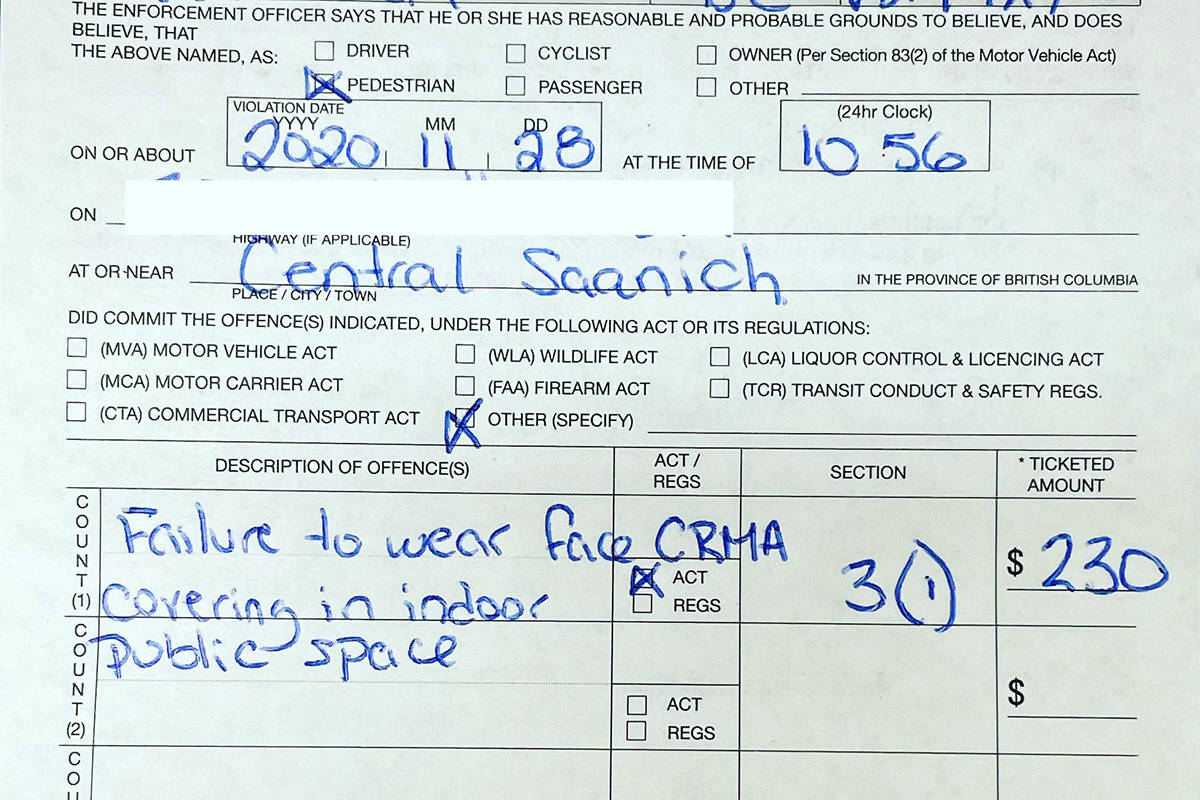 THE ENFORCEMENT OFFICER SAYS THAT HE OR SHE HAS REASONABLE AND PROBABLE GROUNDS TO BELIEVE, AND DOES
BELIEVE, THAT
THE ABOVE NAMED, AS:
DRIVER
CYCLIST
OWNER (Per Section 83(2) of the Motor Vehicle Act)
PEDESTRIAN
PASSENGER
OTHER
VIOLATION DATE
YYYY MM DD
(24hr Clock)
ON OR ABOUT 2020 11 28 AT THE TIME OF 10:56
ON
HIGHWAY (IF APPLICABLE)
AT OR NEAR Central Saanich IN THE PROVINCE OF BRITISH COLUMBIA
PLACE / CITY / TOWN
DID COMMIT THE OFFENCE(S) INDICATED, UNDER THE FOLLOWING ACT OR ITS REGULATIONS:
(MVA) MOTOR VEHICLE ACT
(WLA) WILDLIFE ACT
(LCA) LIQUOR CONTROL & LICENCING ACT
(MCA) MOTOR CARRIER ACT
(FAA) FIREARM ACT
(TCR) TRANSIT CONDUCT & SAFETY REGS.
(CTA) COMMERCIAL TRANSPORT ACT
OTHER (SPECIFY)
DESCRIPTION OF OFFENCE(S)
ACT /
REGS
SECTION
* TICKETED
AMOUNT
COUNT (1)
Failure to wear face
covering in indoor
public space
CRMA
ACT
REGS
3(1)
$ 230
COUNT (2)
ACT
REGS
$
COU